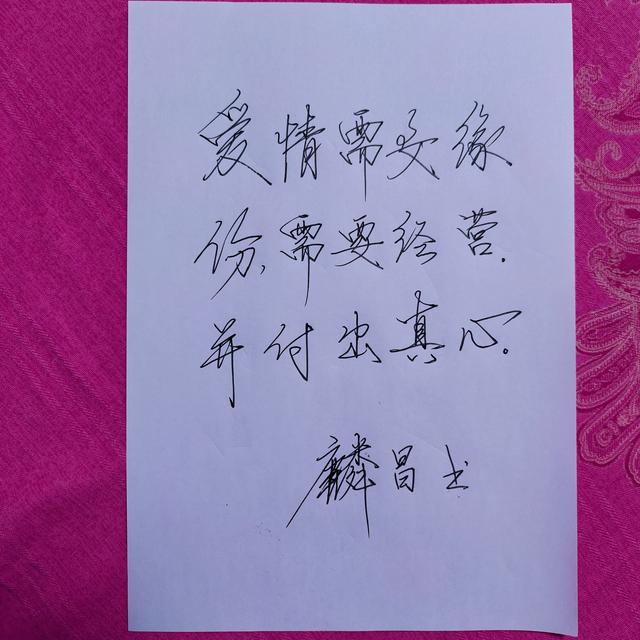 爱情需要缘
份,需要经营.
并付出真心。
麟昌书